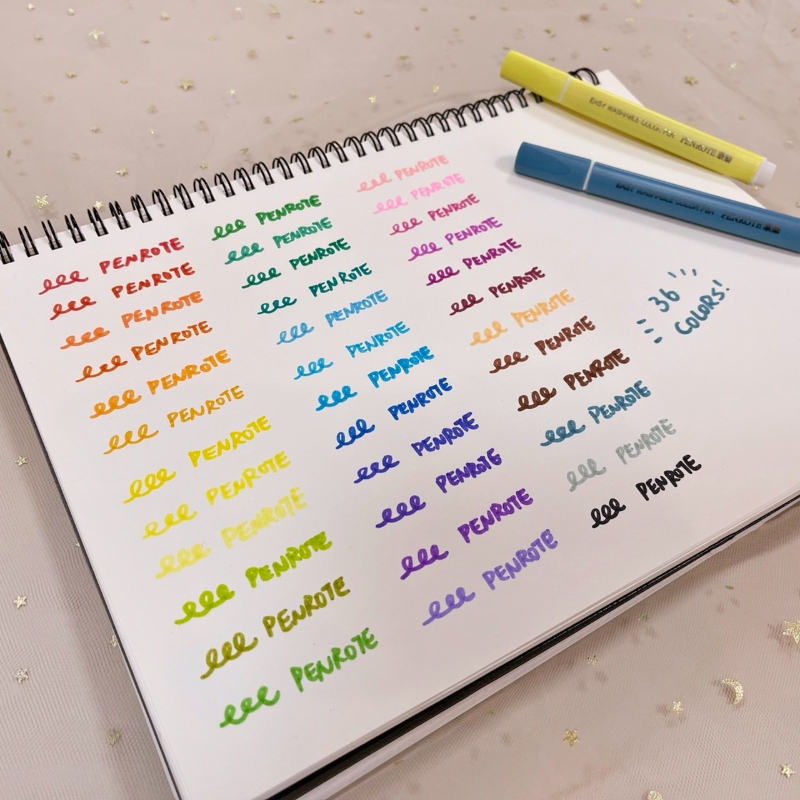 PENROTE
PENROTE
PENROTE
PENROTE
PENROTE
PENROTE
PENROTE
PENROTE
PENROTE
PENROTE
PENROTE
PENROTE
PENROTE
PENROTE
PENROTE
PENROTE
PENROTE
PENROTE
PENROTE
PENROTE
PENROTE
PENROTE
PENROTE
PENROTE
PENROTE
PENROTE
PENROTE
PENROTE
PENROTE
PENROTE
PENROTE
PENROTE
PENROTE
PENROTE
PENROTE
PENROTE
36
COLORS!
EASY WASHABLE COLOR PEN PENROTE
EASY WASHABLE COLOR PEN PENROTE